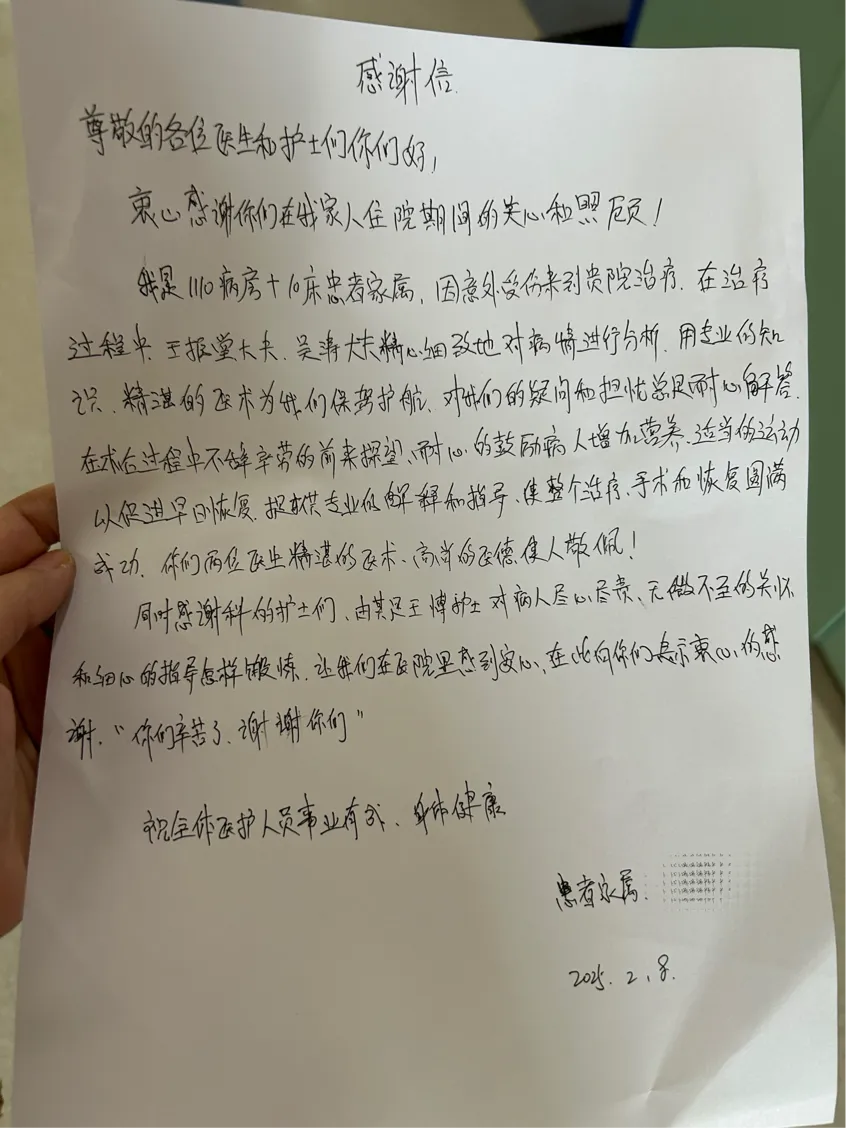 感谢信.
尊敬的各位医生和护士们你们好,
衷心感谢你们在我家人住院期间的关心和照顾!
我是1110病房+10床患者家属,因意外受伤来到贵院治疗.在治疗
过程中.王振堂大夫.吴涛大夫精心细致地对病情进行分析.用专业的知
识.精湛的医术为我们保驾护航、对我们的疑问和担忧总是耐心解答.
在术后过程中不辞辛劳的前来探望、耐心的鼓励病人增加营养、适当的运动
以促进早日恢复.提供专业的解释和指导、使整个治疗、手术和恢复圆满
成功.你们两位医生精湛的医术、高尚的医德使人敬佩!
同时感谢科的护士们、由其是王博护士对病人尽心尽责、无微不至的关怀
和细心的指导怎样锻炼.让我们在医院里感到安心、在此向你们表示衷心的感
谢.“你们辛苦了、谢谢你们”
祝全体医护人员事业有成、身体健康
患者家属.
2025.2.8.